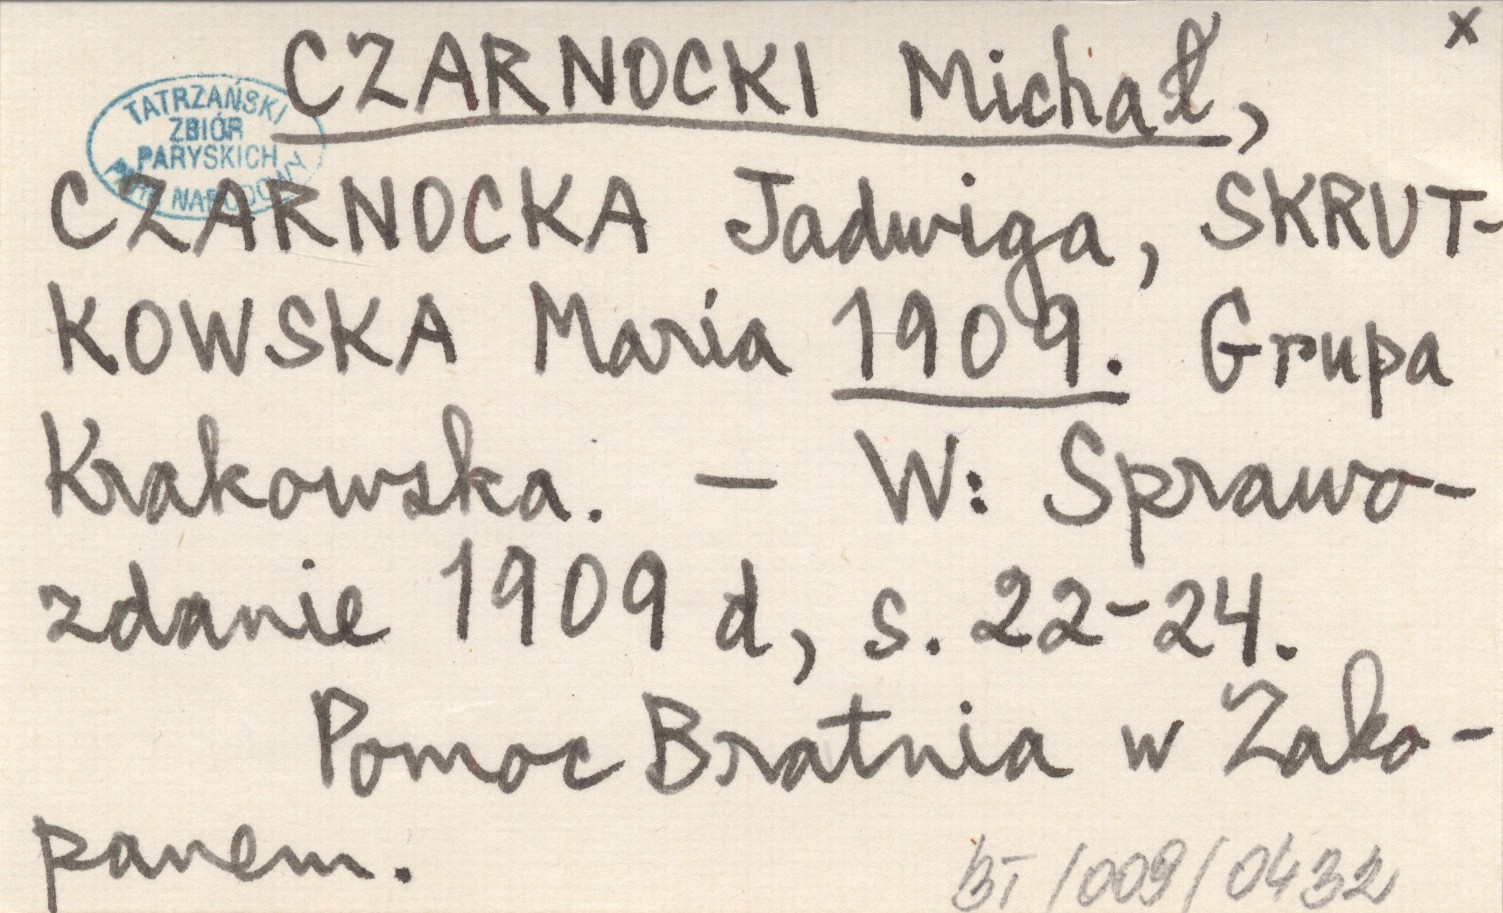 x
CZARNOCKI Michał,
TATRZAŃSKI
ZBIÓR
PARYSKICH
NARODOWY
CZARNOCKA Jadwiga, SKRUT-
KOWSKA Maria 1909. Grupa
Krakowska. — W: Sprawo-
zdanie 1909 d, s. 22-24.
Pomoc Bratnia w Zako-
panem.
BT/009/0432